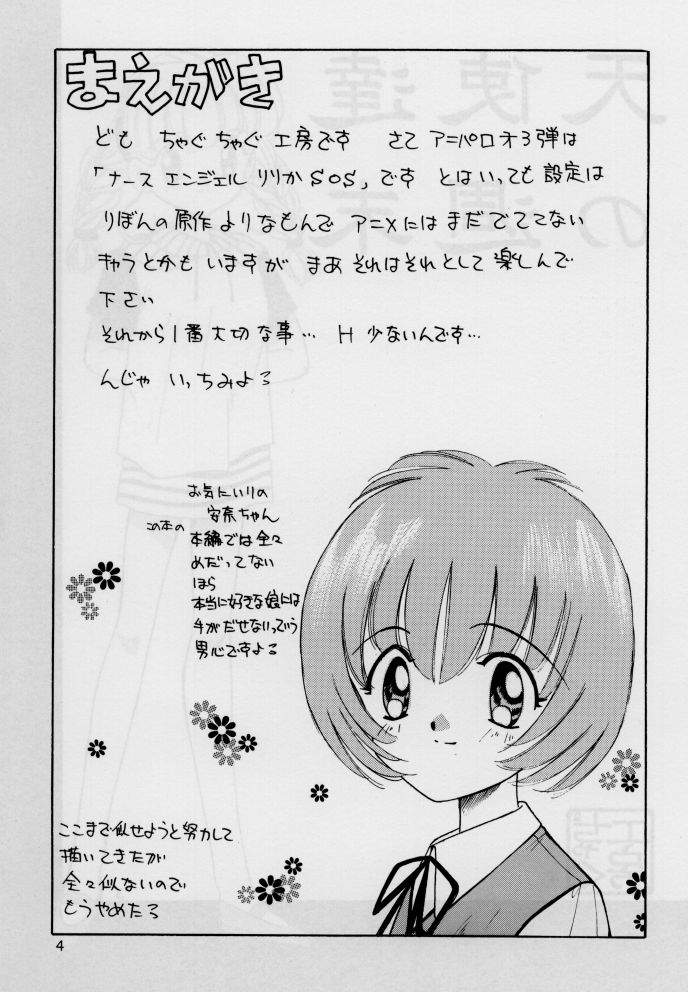 まえがき
ども ちゃぐちゃぐ工房です さて アニパロオ3弾は
「ナースエンジェルりりかSOS」です とはいっても設定は
りぼんの原作よりなもんで アニメにはまだでててない
キャラとかもいますが まあそれはそれとして楽しんで
下さい
それから1番大切な事… H 少ないんです…
んじゃ いっちみよろ
お気にいりの
安奈ちゃん
この本の
本編では全々
めだってない
ほら
本当に好きな娘には
手がだせないってゆう
男心ですよろ
ここまで似せようと努力して
描いてきたが
全々似ないので
もうやめたろ
4
天使達
の週末